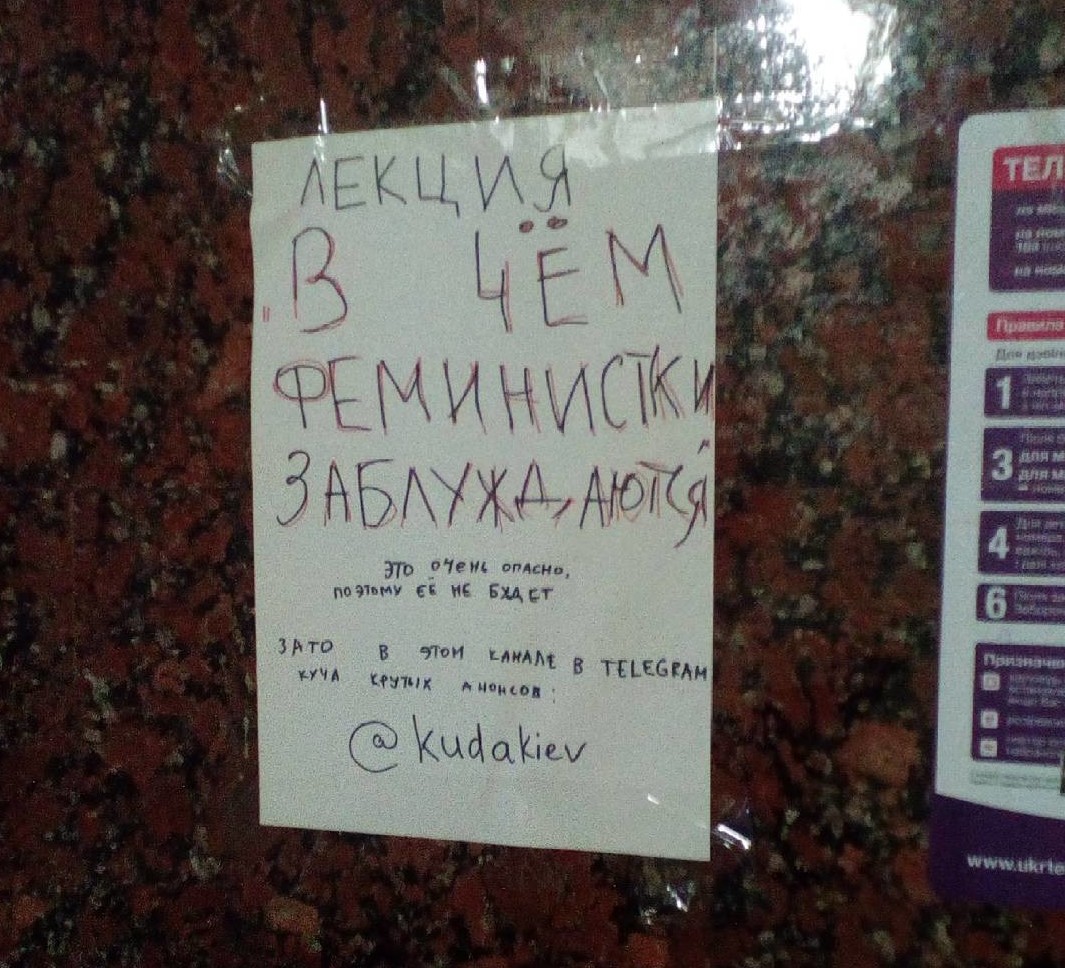 ЛЕКЦИЯ
"В ЧЁМ
ФЕМИНИСТКИ
ЗАБЛУЖДАЮТСЯ"
ЭТО ОЧЕНЬ ОПАСНО,
ПОЭТОМУ ЕЁ НЕ БУДЕТ
ЗАТО В ЭТОМ КАНАЛЕ В TELEGRAM
КУЧА КРУТЫХ АНОНСОВ:
@kudakiev
ТЕЛ
Правила
Для
1
3
для м
для м
4
6
Призначе
www.ukrte